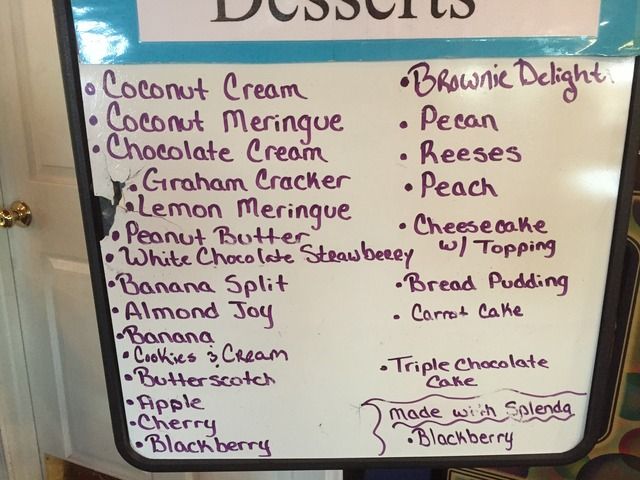 Desserts
• Coconut Cream
• Coconut Meringue
• Chocolate Cream
• Graham Cracker
• Lemon Meringue
• Peanut Butter
• White Chocolate Strawbeery
• Banana Split
• Almond Joy
• Banana
• Cookies & Cream
• Butterscotch
• Apple
• Cherry
• Blackberry
• Brownie Delight
• Pecan
• Reeses
• Peach
• Cheesecake
w/ Topping
• Bread Pudding
• Carrot Cake
• Triple Chocolate
Cake
made with Splenda
• Blackberry